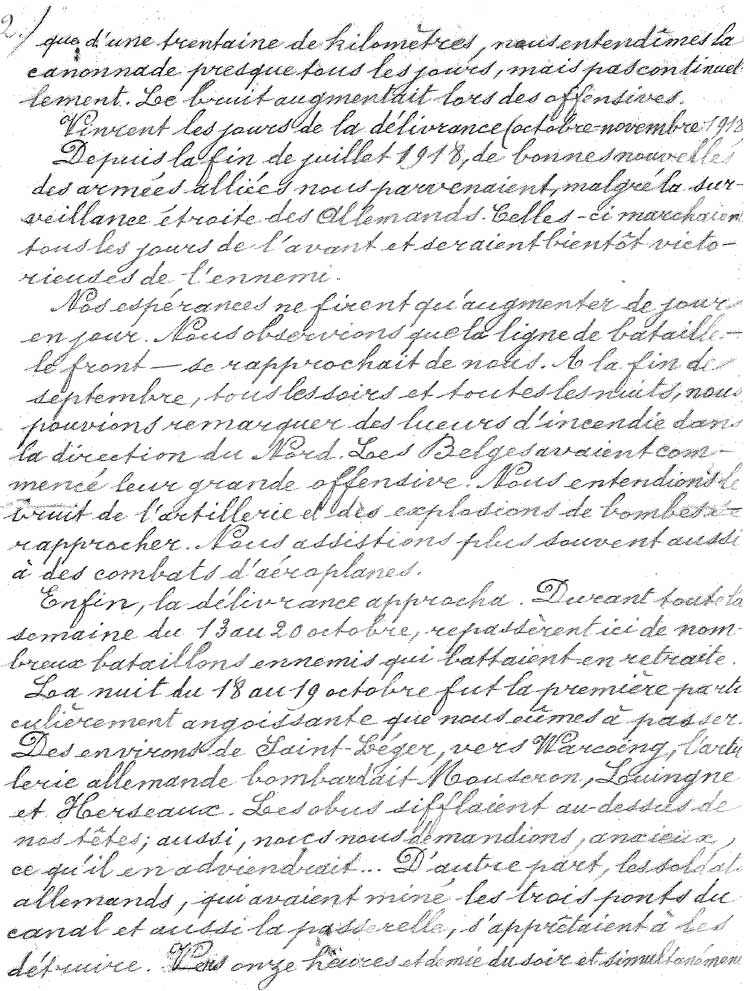 2./
que d'une trentaine de kilomètres, nous entendîmes la
canonnade presque tous les jours, mais pas continuel-
lement. Le bruit augmentait lors des offensives.
Vinrent les jours de la délivrance (octobre-novembre 1918
Depuis la fin de juillet 1918, de bonnes nouvelles
des armées alliées nous parvenaient, malgré la sur-
veillance étroite des Allemands. Celles-ci marchaient
tous les jours de l'avant et seraient bientôt victo-
rieuses de l'ennemi.
Nos espérances ne firent qu'augmenter de jour
en jour. Nous observions que la ligne de bataille -
le front - se rapprochait de nous. A la fin de
septembre, tous les soirs et toutes les nuits, nous
pouvions remarquer des lueurs d'incendie dans
la direction du Nord. Les Belges avaient com-
mencé leur grande offensive. Nous entendions le
bruit de l'artillerie et des explosions de bombes se
rapprocher. Nous assistions plus souvent aussi
à des combats d'aéroplanes.
Enfin, la délivrance approcha. Durant toute la
semaine du 13 au 20 octobre, repassèrent ici de nom-
breux bataillons ennemis qui battaient en retraite.
La nuit du 18 au 19 octobre fut la première parti
culièrement angoissante que nous eûmes à passer.
Des environs de Saint-Léger, vers Warcoing, l'artil
lerie allemande bombardait Mouscron, Luingne
et Herseaux. Les obus sifflaient au-dessus de
nos têtes; aussi, nous nous demandions, anxieux,
ce qu'il en adviendrait... D'autre part, les soldats
allemands, qui avaient miné les trois ponts du
canal et aussi la passerelle, s'apprêtaient à les
détruire. Vers onze heures et demie du soir et simultanément